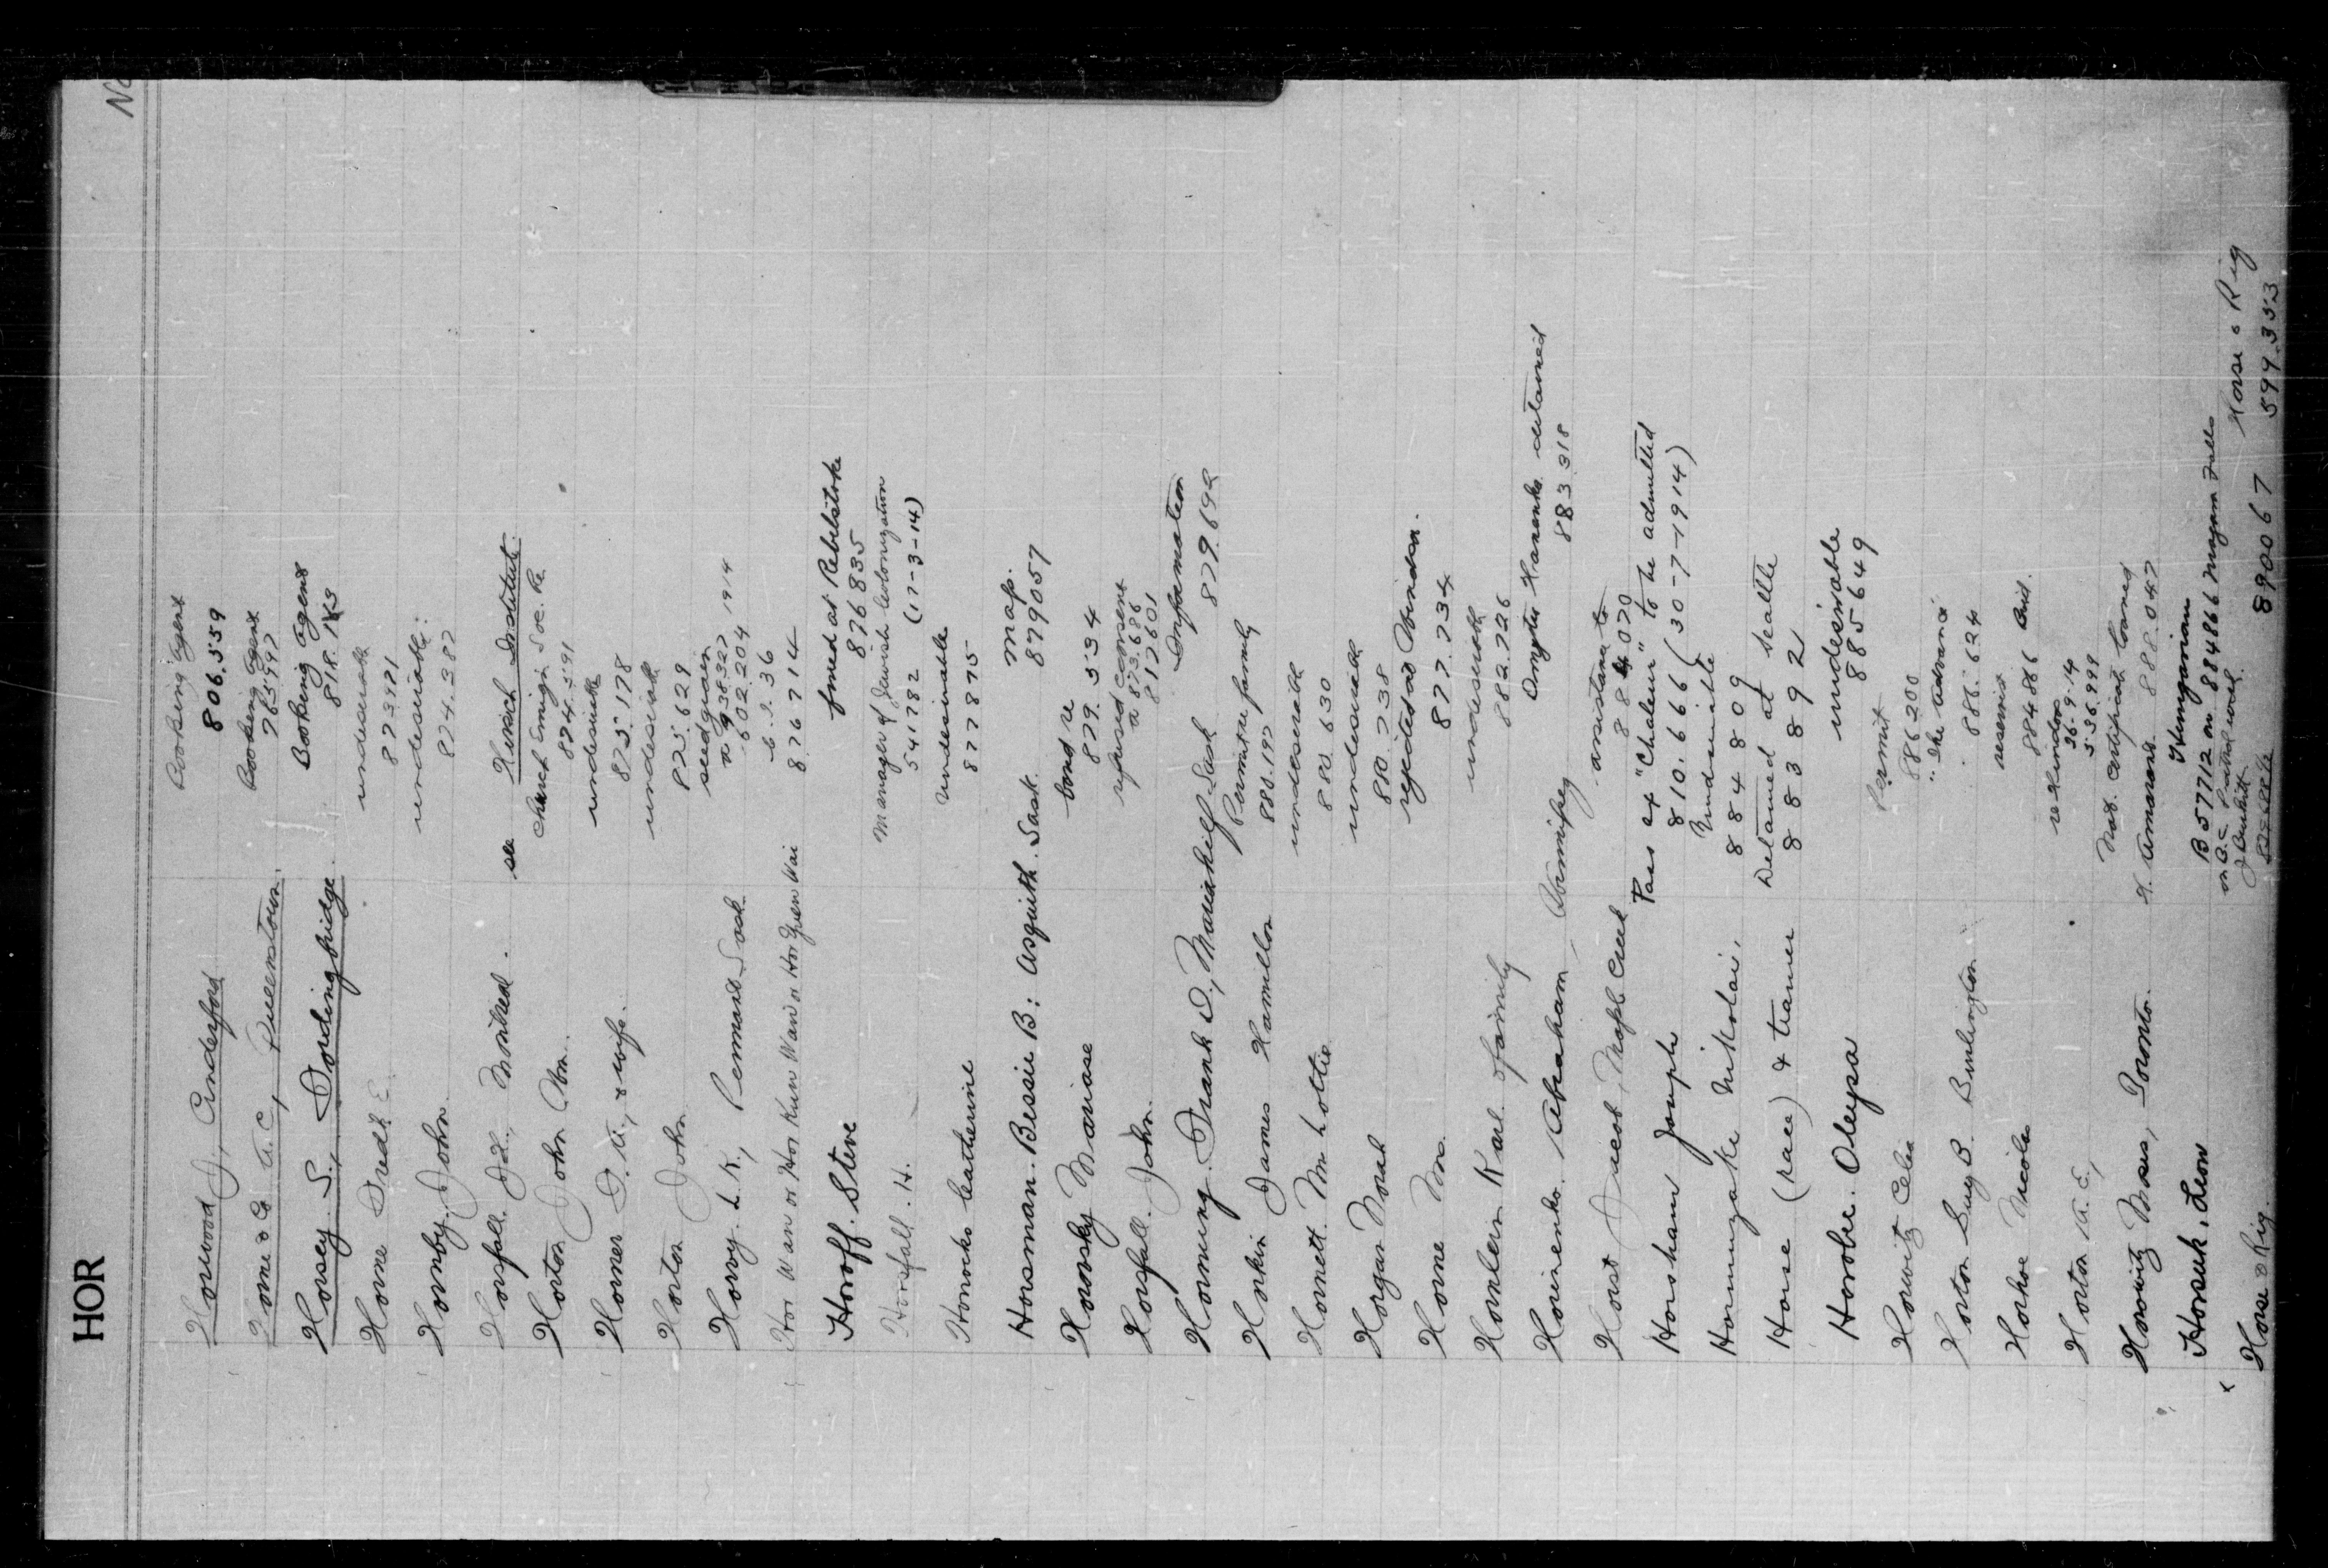 HOR
No
Horwood J, Cinderford
Booking Agent
806.559
Horne & Co A. C, Queenstown.
Booking Agent
765997
Horsey. S., Fordingbridge.
Booking Agent
818.143
Horne Fredk E
undesirable
873971
Hornby. John.
undesirable:
874.382
Horsfall. J.L., Montreal.
see Hirsch Institute.
Horton John Wm.
Church Emign Soc. Re
874.591
Horner F. A., & wife.
undesirable
825.178
Horton John
undesirable
825.629
Horvy. L. K., Pennant Sask
seed grain
938327 1914
602.204
Hor Wan or Hor Kun Wai or Hor Yuen Wai
6.2.36
876714
Horoff. Steve
fined at Rebelstoke
876835
Horsfall. H.
Manager of Jewish Colonization
541782 (17-3-14)
Horrocks Catherine
undesirable
877875
Horsman. Bessie B: Asquith. Sask.
map.
879057
Horovsky Mariase
bond re
879.534
Horsfall. John.
refused consent
873.686
817601
Hornung. Frank D., Sask
Information
879.692
Horkin James Hamilton
Permit re family
880.197
Hornett. Mr Lottie
undesirable
880.630
Horgan Norah
undesirable
880.738
Horne Mrs.
rejected at Windsor.
877.734
Hornlern Karl & family
undesirable
882.726
Horinenko. Abraham, Winnipeg
Dmytro Harenko detained
883.318
Horst Jacob, Maple Creek
assistance to
884070
Horsham Joseph
Pass ex "Chaleur" to be admitted
810.666 (30-7-1914)
Hornungake Nikolai,
Undesirable
884809
Horse (race) & trainer
Detained at Seattle
883892
Horobee. Oleysa
undesirable
885649
Horwitz Celia
Permit
886200
Horton Guy B. Burlington
"The Advance"
886.624
Horhoe Nicolas
reservist
884866
Horton A. E.,
36-9-14
536999
Horowitz Moses, Toronto.
Nat. certificate loaned
888.047
Horsuk, Leon
Hungarian
B 57712 on 884866 Niagara Falls
on B.C. Patrol work
Horse & Rig.
890067
Horse & Rig
599.353